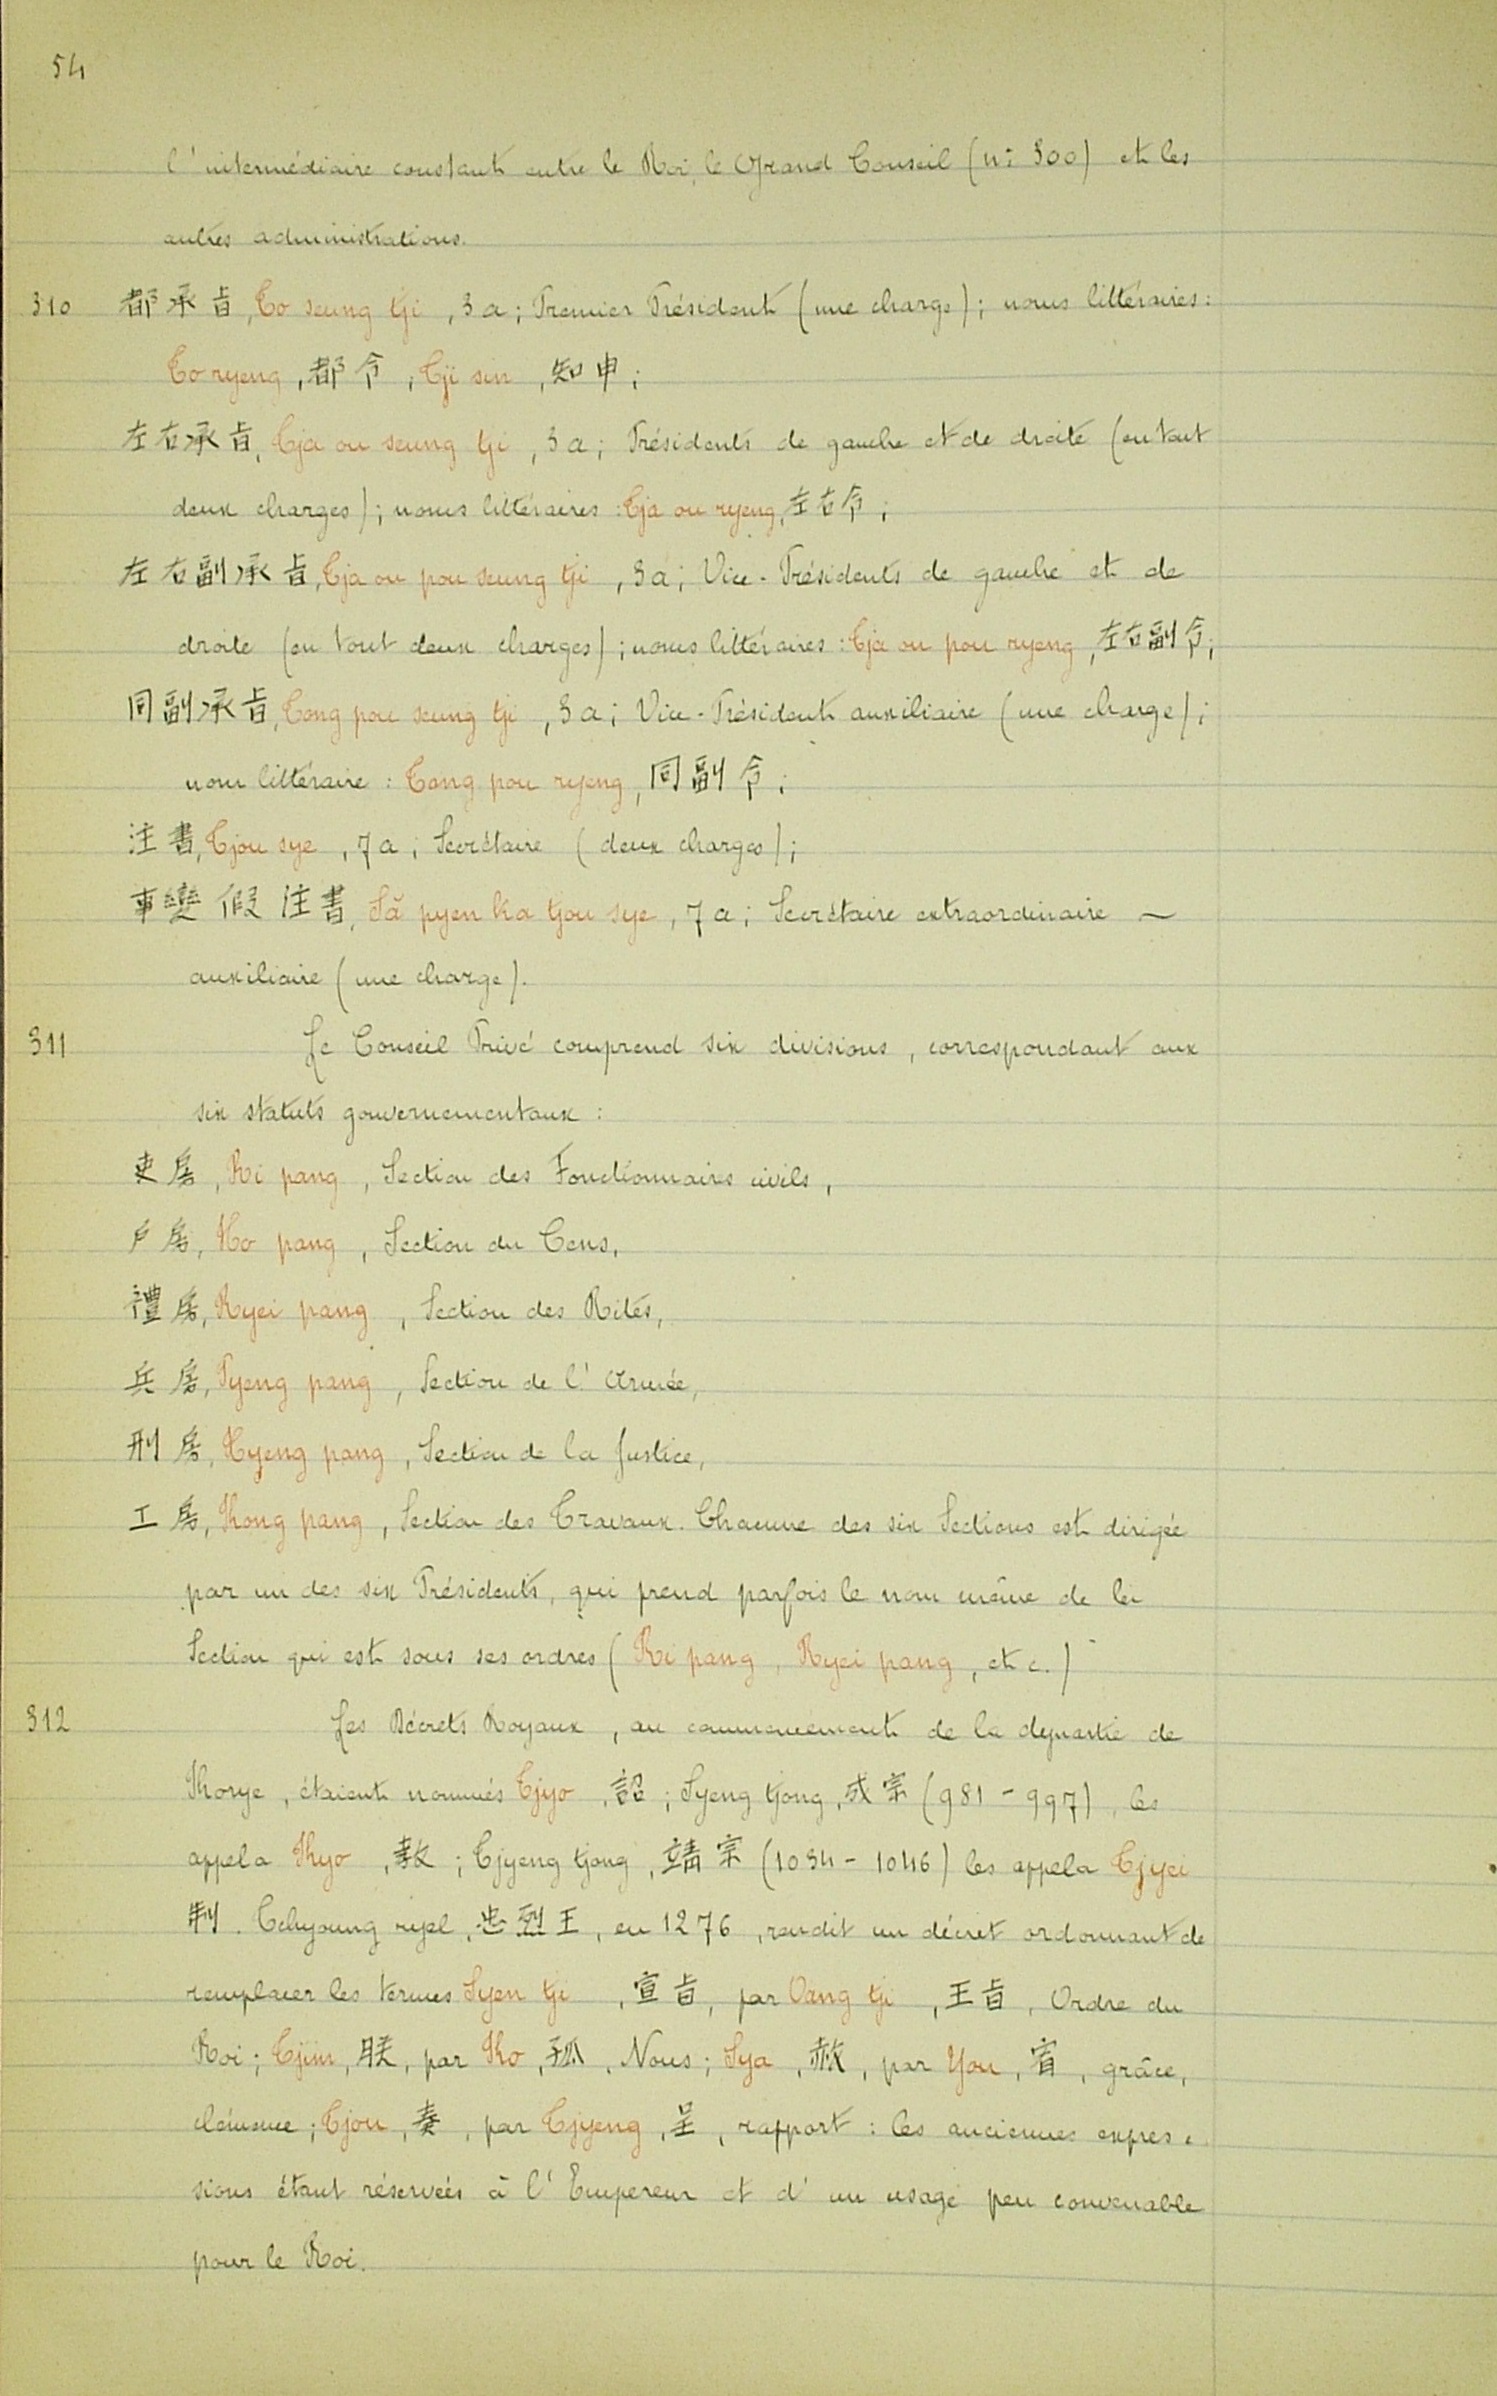 54
l'intermédiaire constant entre le Roi, le Grand Conseil (n: 300) et les
autres administrations.
310 都承旨, To seung tji, 3a; Premier Président (une charge); noms littéraires:
To ryeng, 都令; Tji sin, 知申;
左右承旨, Tja ou seung tji, 3a; Présidents de gauche et de droite (en tout
deux charges); noms littéraires: Tja ou ryeng, 左右令;
左右副承旨, Tja ou pou seung tji, 3a; Vice-Présidents de gauche et de
droite (en tout deux charges); noms littéraires: Tja ou pou ryeng, 左右副令;
同副承旨, Tong pou seung tji, 3a; Vice-Président auxiliaire (une charge);
nom littéraire: Tong pou ryeng, 同副令;
注書, Tjou sye, 7a; Secrétaire (deux charges);
事變假注書, Să pyen ka tjou sye, 7a; Secrétaire extraordinaire —
auxiliaire (une charge).
311 Le Conseil Privé comprend six divisions, correspondant aux
six statuts gouvernementaux:
吏房, Ri pang, Section des Fonctionnaires civils,
戶房, Ho pang, Section du Cens,
禮房, Ryei pang, Section des Rites,
兵房, Pyeng pang, Section de l'Armée,
刑房, Hyeng pang, Section de la Justice,
工房, Kong pang, Section des Travaux. Chacune des six Sections est dirigée
par un des six Présidents, qui prend parfois le nom même de la
Section qui est sous ses ordres (Ri pang, Ryei pang, etc.)
312 Les Décrets Royaux, au commencement de la dynastie de
Korye, étaient nommés Tjyo, 詔; Syeng tjong, 成宗 (981-997), les
appela Kyo, 敎; Tjyeng tjong, 靖宗 (1034-1046) les appela Tjyei
制. Tchyoung ryel, 忠烈王, en 1276, rendit un décret ordonnant de
remplacer les termes Syen tji, 宣旨, par Oang tji, 王旨, Ordre du
Roi; Tjim, 朕, par Ko, 孤, Nous; Sya, 赦, par You, 宥, grâce,
clémence; Tjou, 奏, par Tjyeng, 呈, rapport: les anciennes expres-
sions étant réservées à l'Empereur et d'un usage peu convenable
pour le Roi.